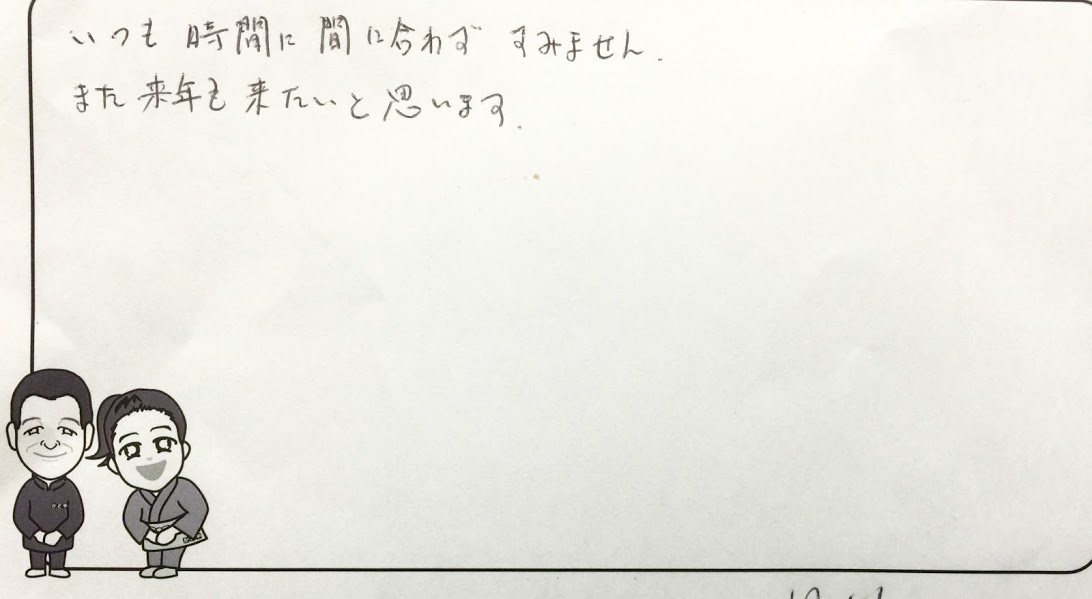 いつも 時間に 間に合わず すみません.
また 来年も 来たいと思います.